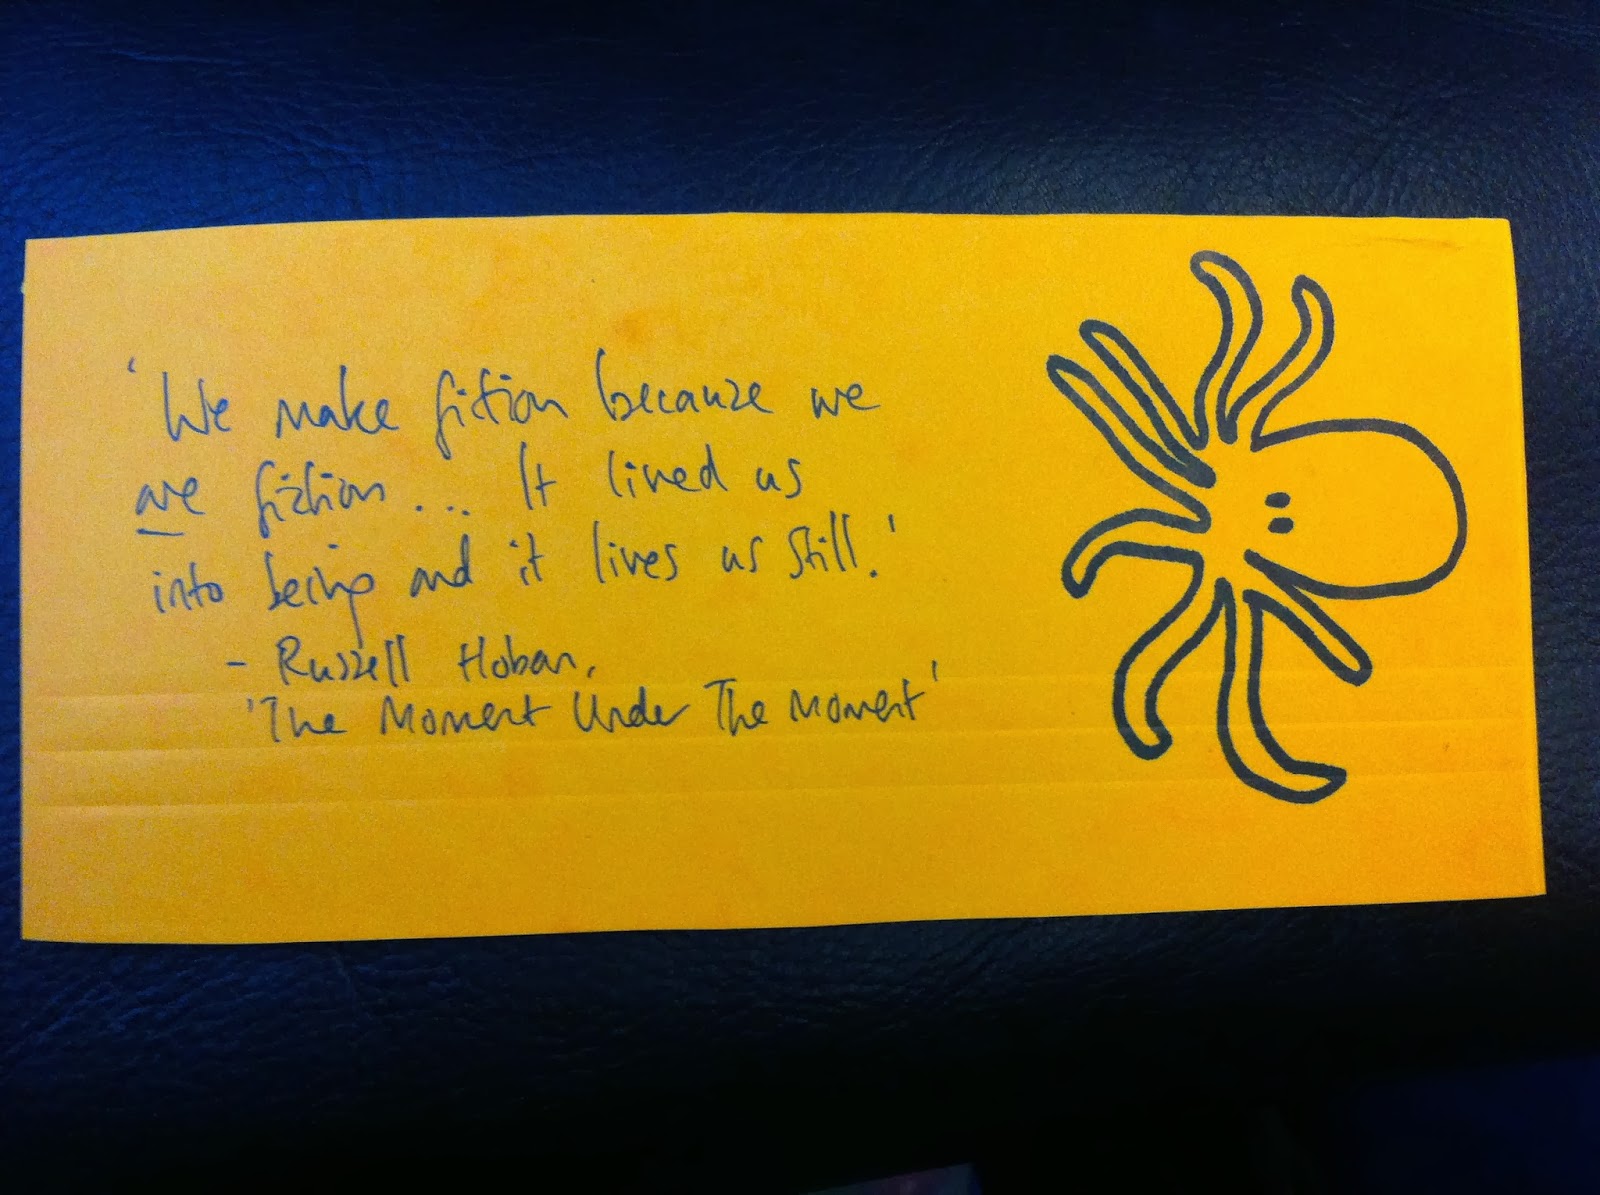 'We make fiction because we
are fiction... It lived us
into being and it lives us still.'
- Russell Hoban,
'The Moment Under The Moment'